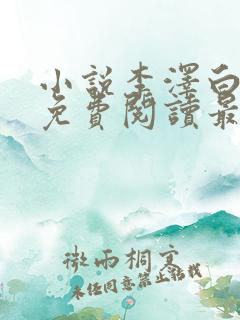 小說李澤白
免費閱讀最
微雨桐
未經同意禁止轉載